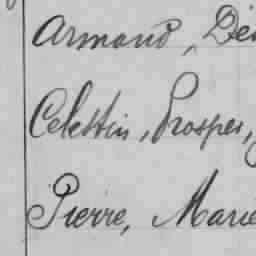 Armand, Dé
Celestin, Prosper,
Pierre, Marie